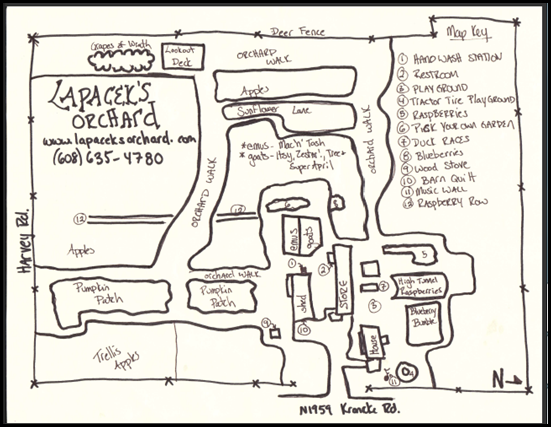 Deer Fence
Map Key
Grapes of Wrath
Lookout
Deck
ORCHARD
WALK
① HAND WASH STATION
② RESTROOM
③ PLAYGROUND
④ TRACTOR TIRE PLAYGROUND
⑤ RASPBERRIES
⑥ PICK YOUR OWN GARDEN
⑦ DUCK RACES
⑧ Blueberries
⑨ WOOD STOVE
⑩ BARN QUILT
⑪ MUSIC WALL
⑫ RASPBERRY ROW
LAPACEK'S
ORCHARD
www.lapaceksorchard.com
(608) 635-4780
Apples
Sunflower Lane
*emus - Mac 'n' Tosh
Super April
ORCHARD WALK
ORCHARD WALK
Harvey Rd.
⑫
⑫
Apples
emus
goats
ORCHARD WALK
Pumpkin
Patch
Pumpkin
Patch
①
②
shed
STORE
5
⑦
High Tunnel
Raspberries
Blueberry
Bumble
⑨
⑩
House
Trellis
Apples
⑪
N→
N1959 Kroncke Rd.